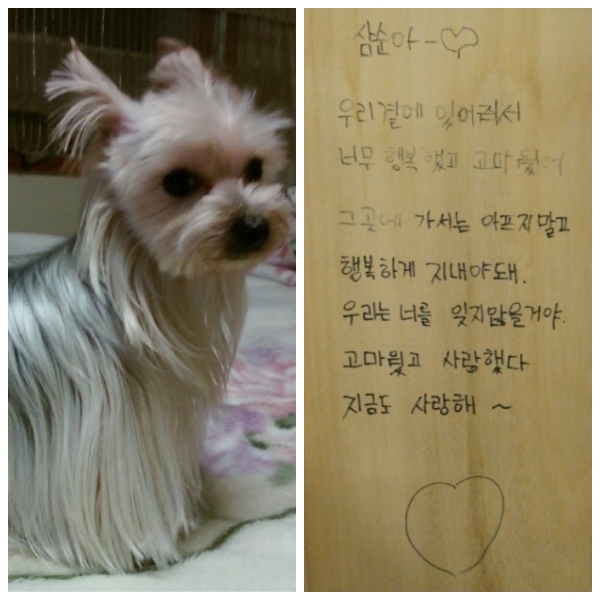 삼순아-♡
우리곁에 있어줘서
너무 행복했고 고마웠어
그곳에 가서는 아프지말고
행복하게 지내야돼.
우리는 너를 잊지않을거야.
고마웠고 사랑했다
지금도 사랑해 ~